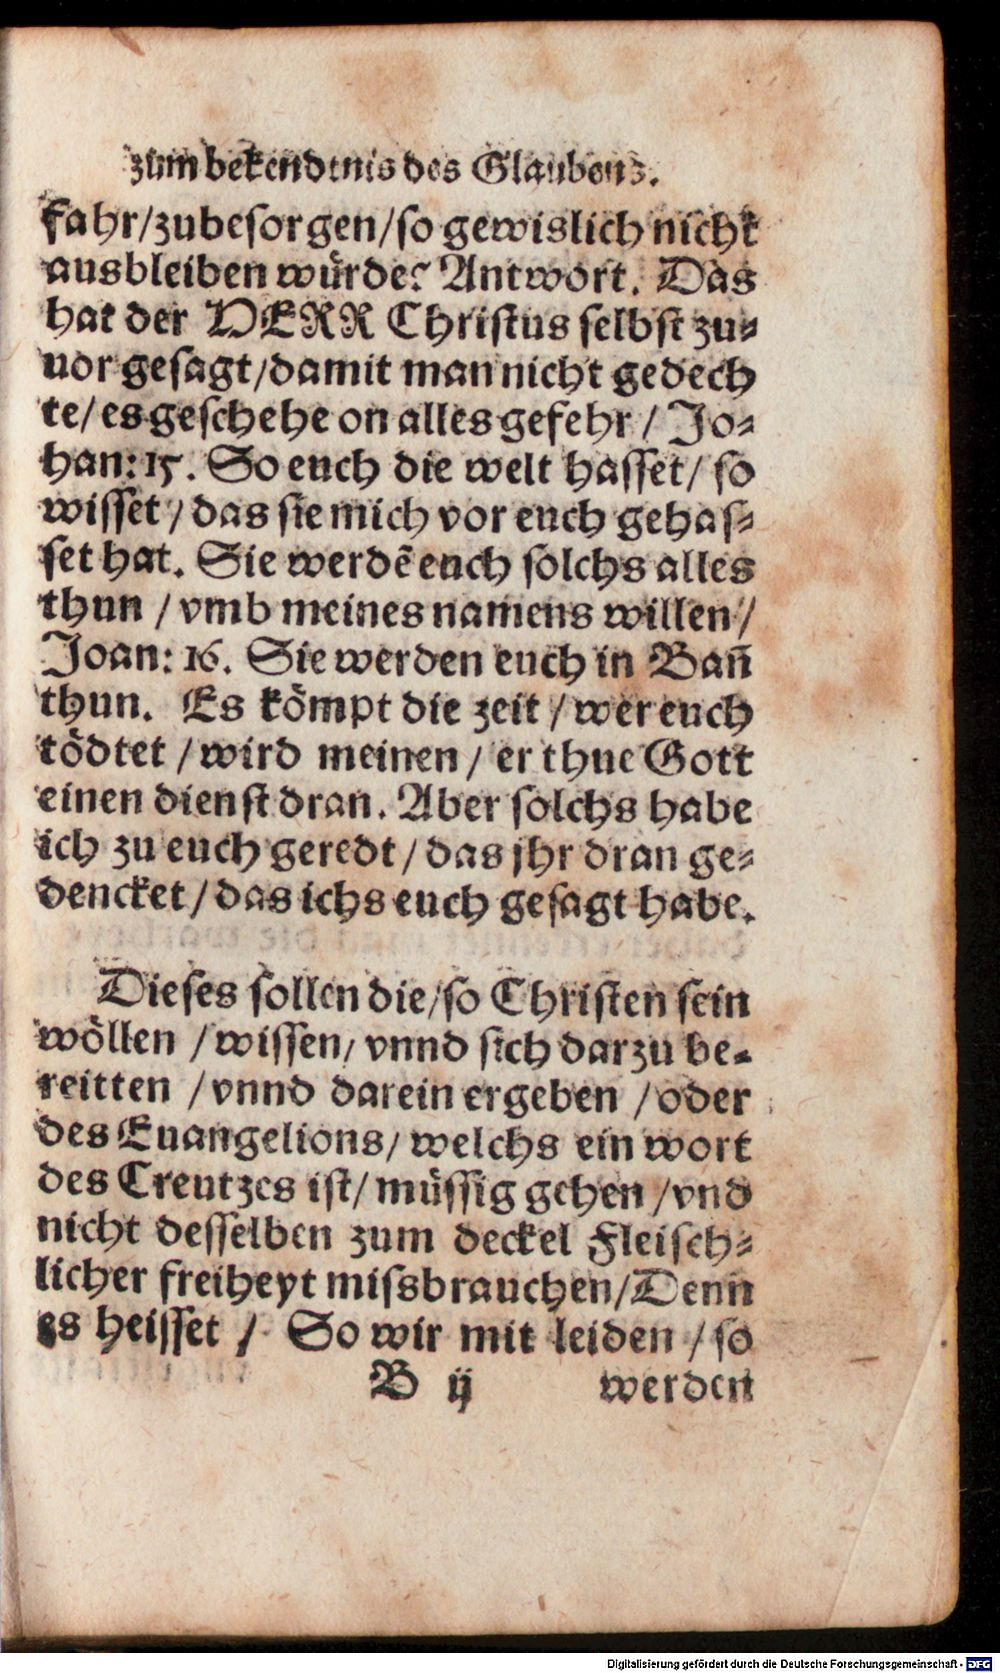 zum bekendtnis des Glaubens.
fahr/zubesorgen/so gewislich nicht
ausbleiben würde? Antwort. Das
hat der HERR Christus selbst zu⸗
uor gesagt/damit man nicht gedech
te/es geschehe on alles gefehr / Jo⸗
han: 15. So euch die welt hasset/ so
wisset / das sie mich vor euch gehas⸗
set hat. Sie werdē euch solchs alles
thun / vmb meines namens willen /
Joan: 16. Sie werden euch in Bañ
thun. Es kömpt die zeit / wer euch
tödtet / wird meinen / er thue Gott
einen dienst dran. Aber solchs habe
ich zu euch geredt / das jhr dran ge⸗
dencket / das ichs euch gesagt habe.
Dieses sollen die/so Christen sein
wöllen / wissen, vnnd sich darzu be⸗
reitten / vnnd darein ergeben / oder
des Euangelions/ welchs ein wort
des Creutzes ist/ müssig gehen / vnd
nicht desselben zum deckel Fleisch⸗
licher freiheyt missbrauchen/Denn
es heisset / So wir mit leiden / so
B ij werden
Digitalisierung gefördert durch die Deutsche Forschungsgemeinschaft - DFG